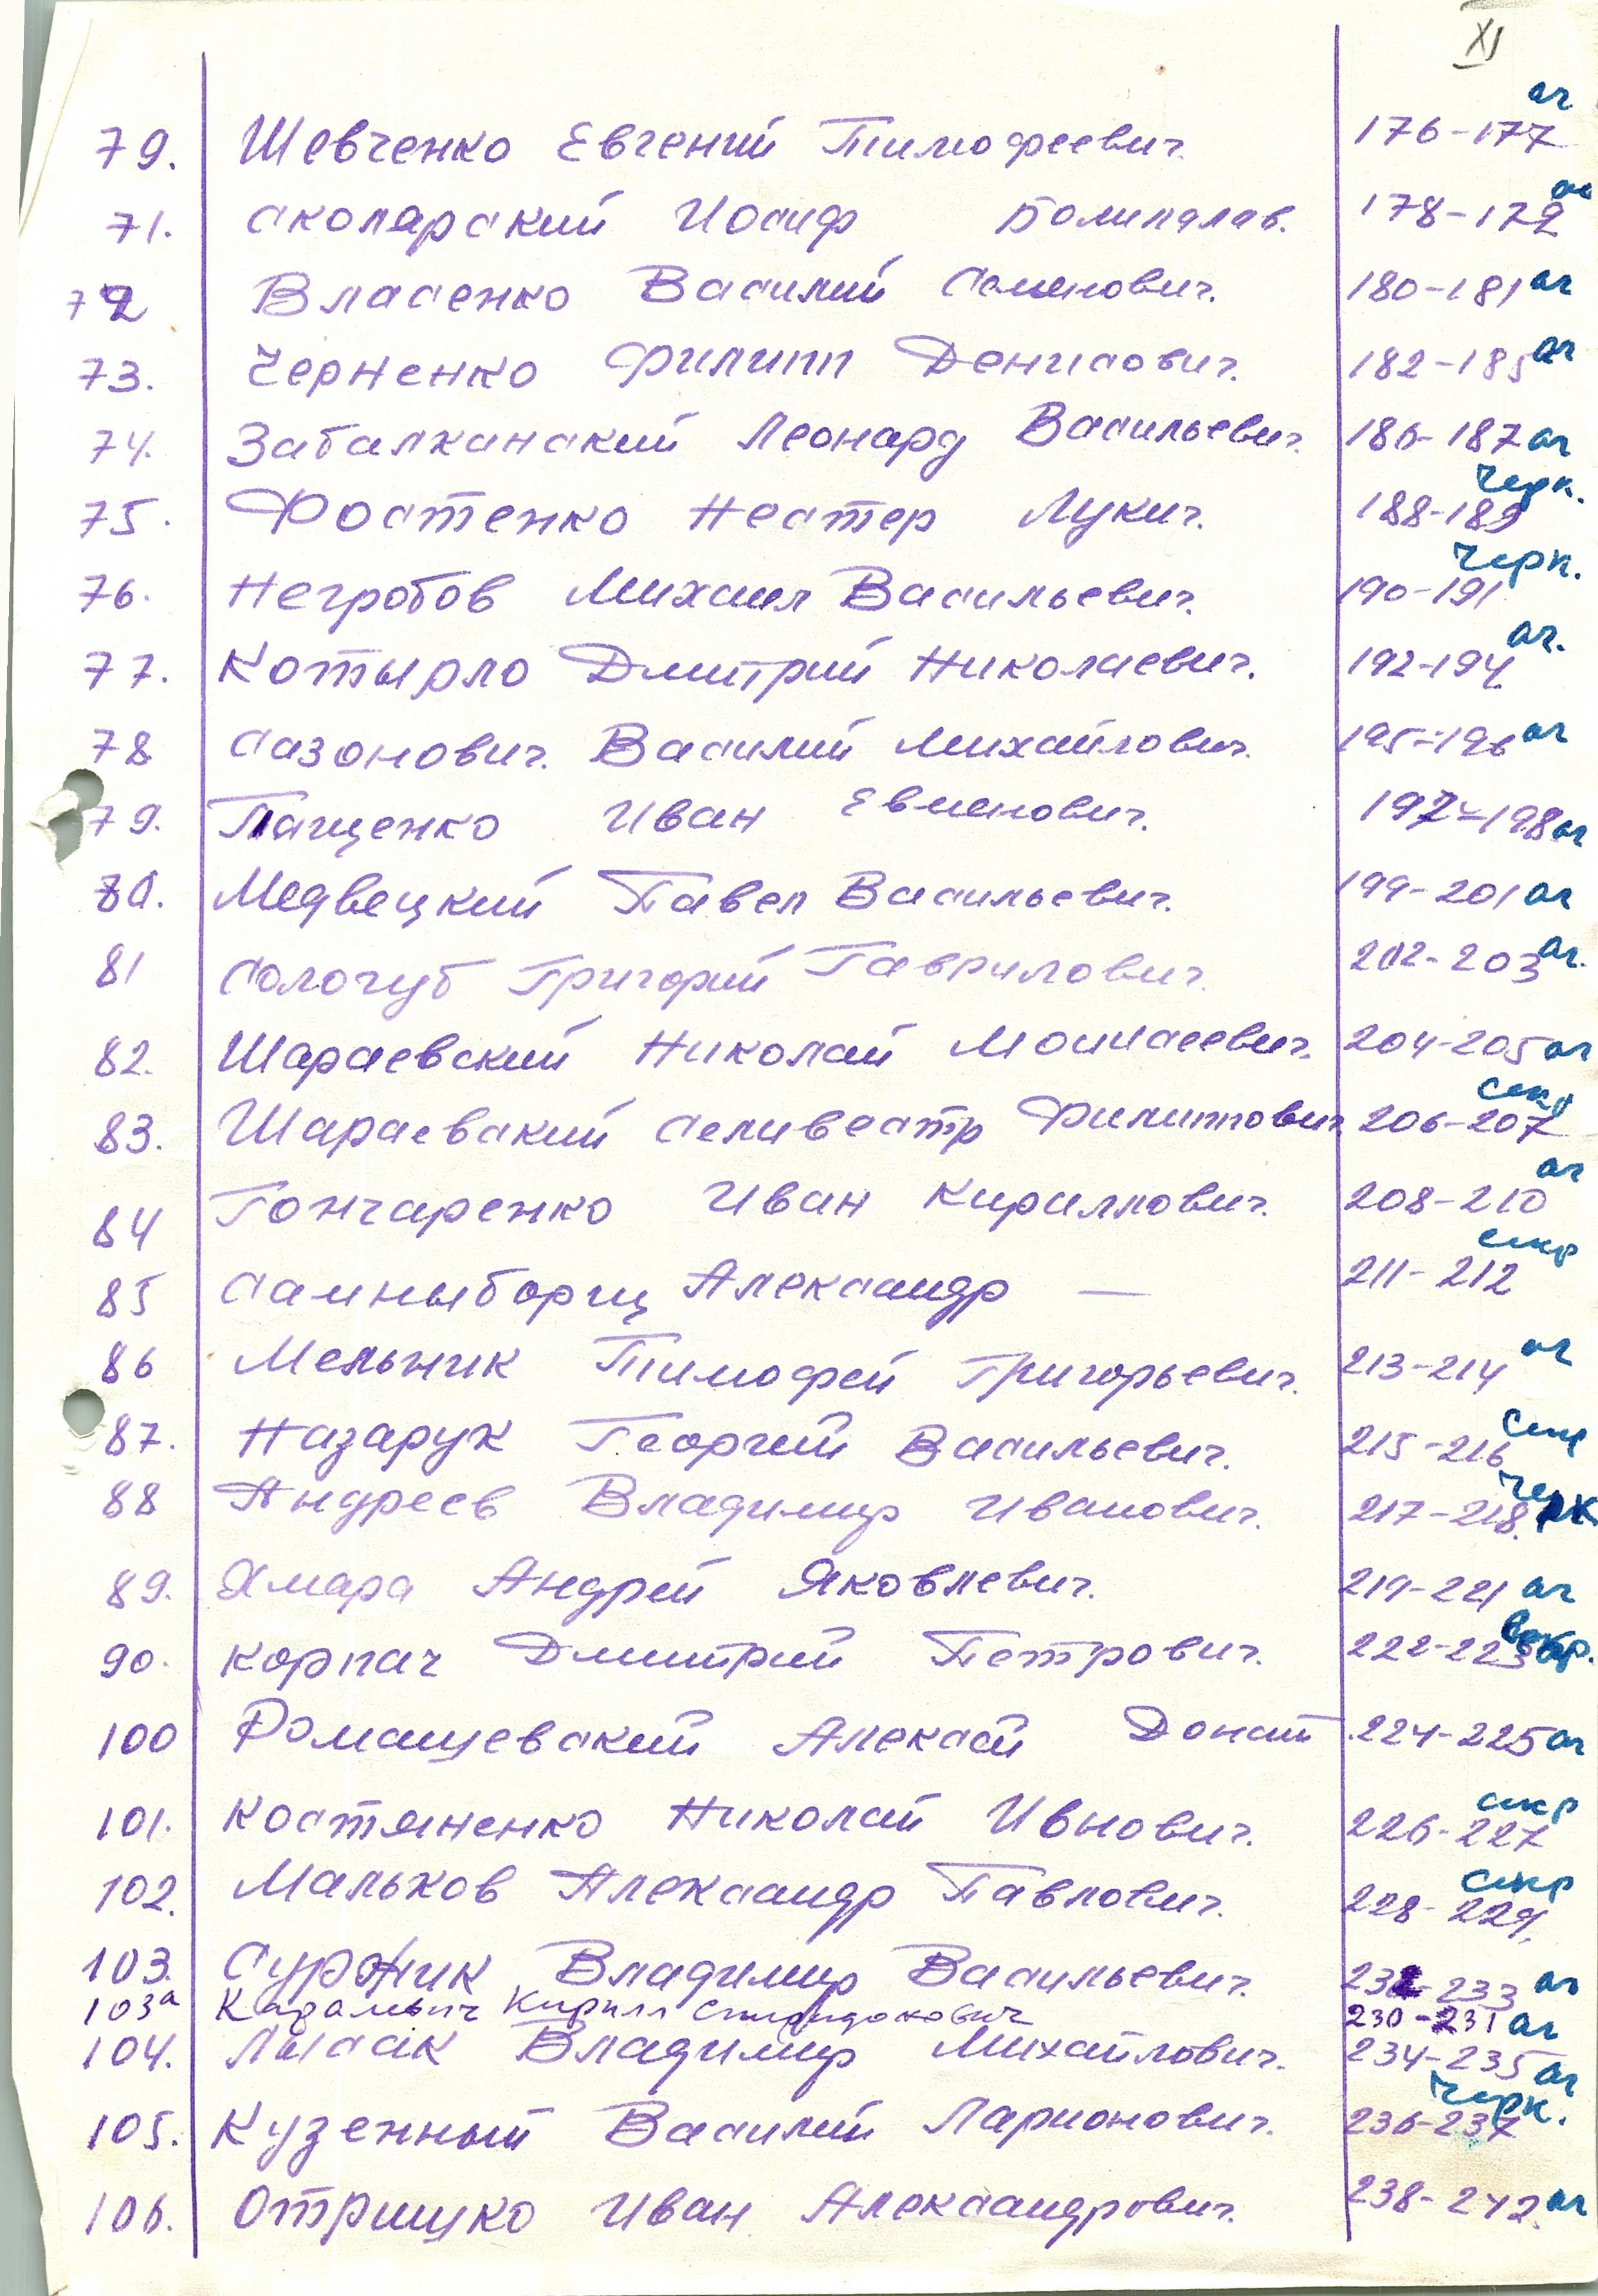 XI
79. Шевченко Евгений Тимофеевич. 176-177 ог
71. Сколярский Иосиф 178-179
72 Власенко Василий Семенович. 180-181 ог
73. Черненко Филипп Денисович. 182-185 ог
74. Забалканский Леонард Васильевич. 186-187 ог
75. Фостенко Нестер Лукич. 188-189 Черк.
76. Негробов Михаил Васильевич. 190-191 Черк.
77. Котырло Дмитрий Николаевич. 192-194 ог.
78 Сазонович. Василий Михайлович. 195-196 ог
79. Пащенко Иван 197-198 ог
80. Медвецкий Павел Васильевич. 199-201 ог
81 Сологуб Григорий Гаврилович. 202-203 ог.
82. Шараевский Николай Моисеевич. 204-205 ог
83. Шараевский Селивестр Филиппович 206-207
84 Гончаренко Иван Кириллович. 208-210 ог
85 Самныборщ Александр — 211-212 скр
86 Мельник Тимофей Григорьевич. 213-214 ог
87. Назарук Георгий Васильевич. 215-216
88 Андреев Владимир Иванович. 217-218. Черк
89. Хмара Андрей Яковлевич. 219-221 ог
90. Корпач Дмитрий Петрович. 222-223
100 Ромащевский Алексей Донат 224-225 ог
101. Костяненко Николай Ивнович. 226-227 скр
102. Мальков Александр Павлович. 228-229. скр
103. Владимир Васильевич. 232-233 ог
103а Кирилл Спиридонович 230-231 ог
104. Лысак Владимир Михайлович. 234-235 ог
105. Кузенный Василий Ларионович. 236-237 Черк.
106. Отришко Иван Александрович. 238-242. ог